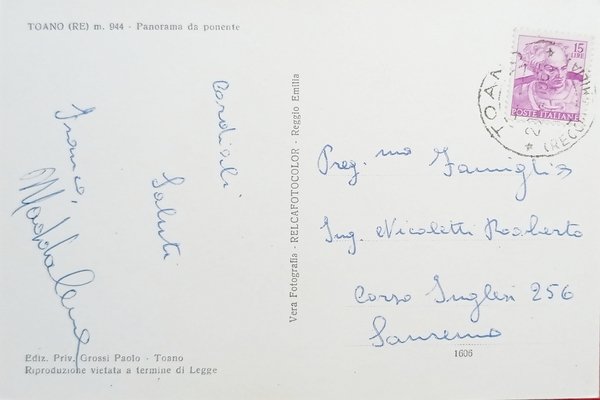 TOANO (RE) m. 944 - Panorama da ponente
Cordiali
Saluti
Franca
Maddalena
Ediz. Priv. Grossi Paolo - Toano
Riproduzione vietata a termine di Legge
Vera Fotografia - RELCAFOTOCOLOR - Reggio Emilia
15
LIRE
POSTE ITALIANE
TOANO
Preg.mo Famiglia
Ing. Nicoletti Roberto
Corso Inglesi 256
Sanremo
1606